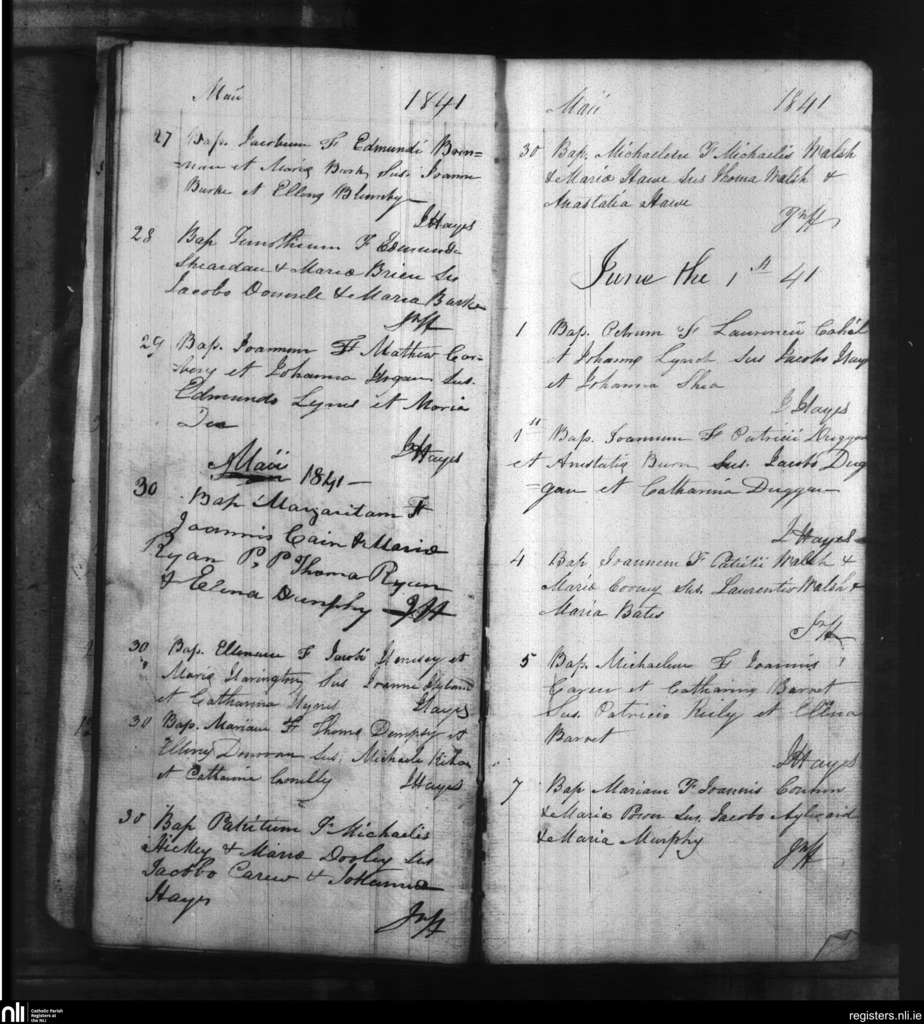 Maii 1841
27 Bap. Jacobum F Edmundi Bren=
=nan et Maria Burk Sus. Joanne
Burke et Elleng
J Hayes
28 Bap Timotheum F Edmundi
Sheardan & Maria Brien Sus
Jacobo & Maria Burke
JnH
29 Bap. Joannem F Mathew Cor=
=bery et Johanna Hogan Sus.
Edmundo Lynes et Maria
Dee
J Hayes
Maii 1841 —
30 Bap Margaritam F
Joannis Cain & Maria
Ryan P, P Thoma Ryan
& Elena Dunphy JH
30 Bap. Ellenam F Jacobi et
Maria Harington Sus Joanne Hyland
et Catharina Hynes
Hayes
30 Bap. Mariam F Thoma Dempsy et
Elleng Donovan Sus. Michaele
et Catherine Connilly J Hayes
30 Bap Patritium F Michaelis
Hickey & Maria Dooley Sus
Jacobo Carew & Johanna
Hayes
JnH
Maii 1841
30 Bap. Michaelem F Michaelis Walsh
& Maria Hawe Sus Thoma Walsh &
Anastatia Hawe
JnH
June the 1st 41
1 Bap. Petrum F Laurencii Cahil
et Johanna Lynch Sus Jacobo Hay
et Johanna Shea
J Hayes
1" Bap. Joannem F Patricii Duggan
et Anastatia Burn Sus. Jacobo Dug
=gan et Catharina Duggan
J Hayes
4 Bap Joannem F Patritii Walsh &
Maria Cooney Sus. Laurentio Walsh &
Maria Bates
JnH
5 Bap. Michaelem F Joannis
Carew et Catharina Barret
Sus. Patricio Kiely et Elena
Barret
J Hayes
7 Bap Mariam F Joannis
& Maria Power Sus. Jacobo Aylward
& Maria Murphy
JnH
nli
Catholic Parish
Registers at
the NLI
registers.nli.ie